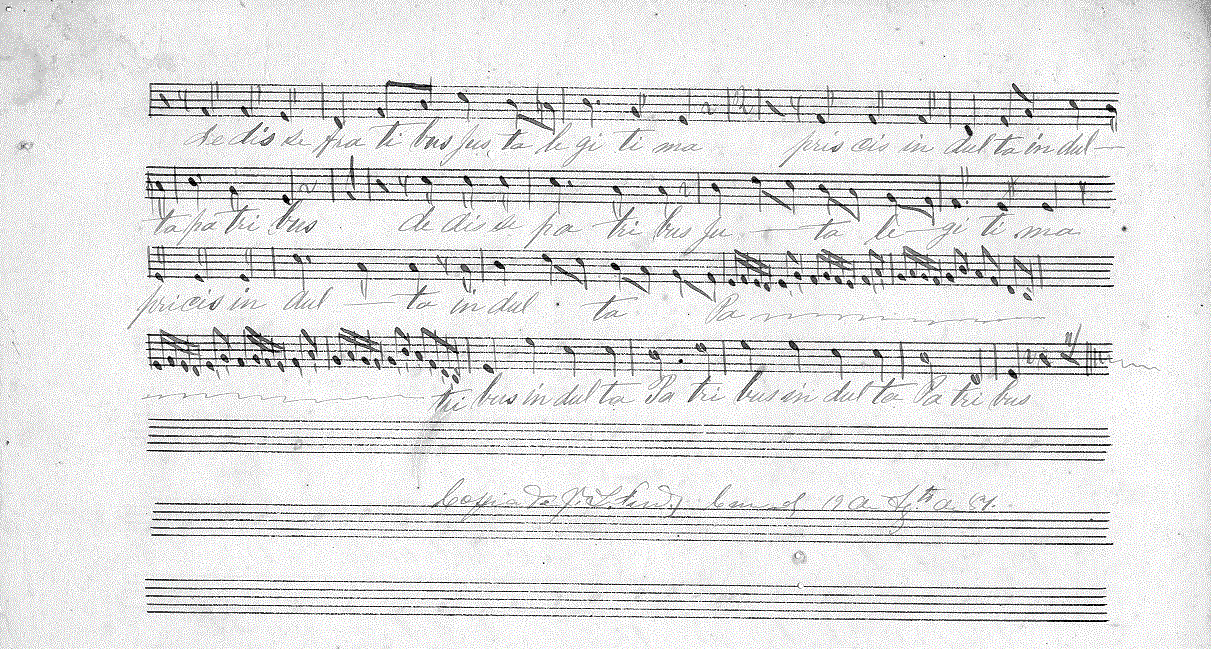 de dis se fra ti bus jus ta le gi ti ma pris cis in dul ta in dul
ta pa tri bus de dis se pa tri bus ju ta le gi ti ma
pricis in dul ta in dul ta Pa
tri bus in dul ta Pa tri bus in dul ta Pa tri bus